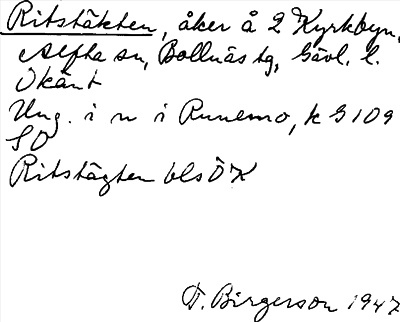 Ritstäkten, åker å 2 Kyrkbyn,
Alfta sn, Bollnäs tg, Gävl. l.
Okänt
Ung. i n i Runemo, k G 109
SO
Ritstägten bls ÖK
T. Birgerson 1947